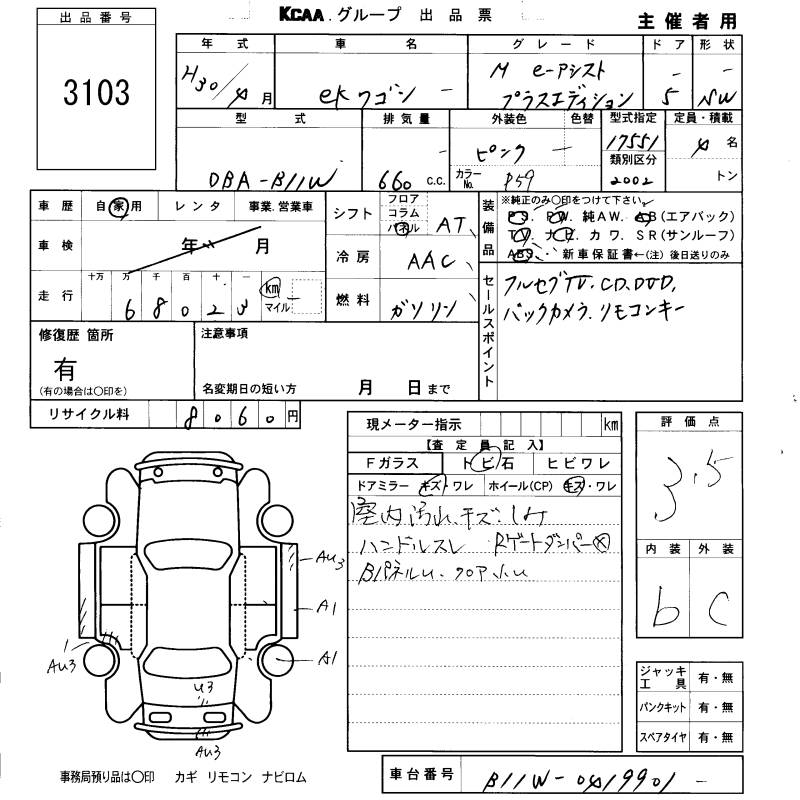 出品番号
3103
KCAA.グループ 出品票
主催者用
年式 車名 グレード ドア 形状
H30/4月 eKワゴン M e-アシスト プラスエディション 5 NW
型式 排気量 外装色 色替 型式指定 定員・積載
DBA-B11W 660 c.c. ピンク カラーNo. P59 17551 4名
類別区分
2002 トン
車歴 自家用 レンタ 事業.営業車
車検 年 月
走行 十万 万 千 百 十 一
68023 km マイル
シフト フロア コラム パネル AT
冷房 AAC
燃料 ガソリン
装備品
※純正のみ〇印をつけて下さい
PS. PW. 純AW. AB(エアバック)
TV. ナビ. カワ. SR(サンルーフ)
ABS. 新車保証書←(注) 後日送りのみ
セールスポイント
フルセグTV.CD.DVD,
バックカメラ.リモコンキー
修復歴 箇所
有
(有の場合は〇印を)
注意事項
名変期日の短い方 月 日まで
リサイクル料 8060円
現メーター指示 km
【査定員記入】
Fガラス トビ石 ヒビワレ
ドアミラー キズ・ワレ ホイール(CP) キズ・ワレ
室内汚れ、キズ、しみ
ハンドルスレ Rゲートダンパー×
BパネルU.
評価点
3.5
内装 外装
b C
AU3
A1
A1
AU3
U3
AU3
ジャッキ工具 有・無
パンクキット 有・無
スペアタイヤ 有・無
事務局預り品は〇印 カギ リモコン ナビロム
車台番号 B11W-0419901